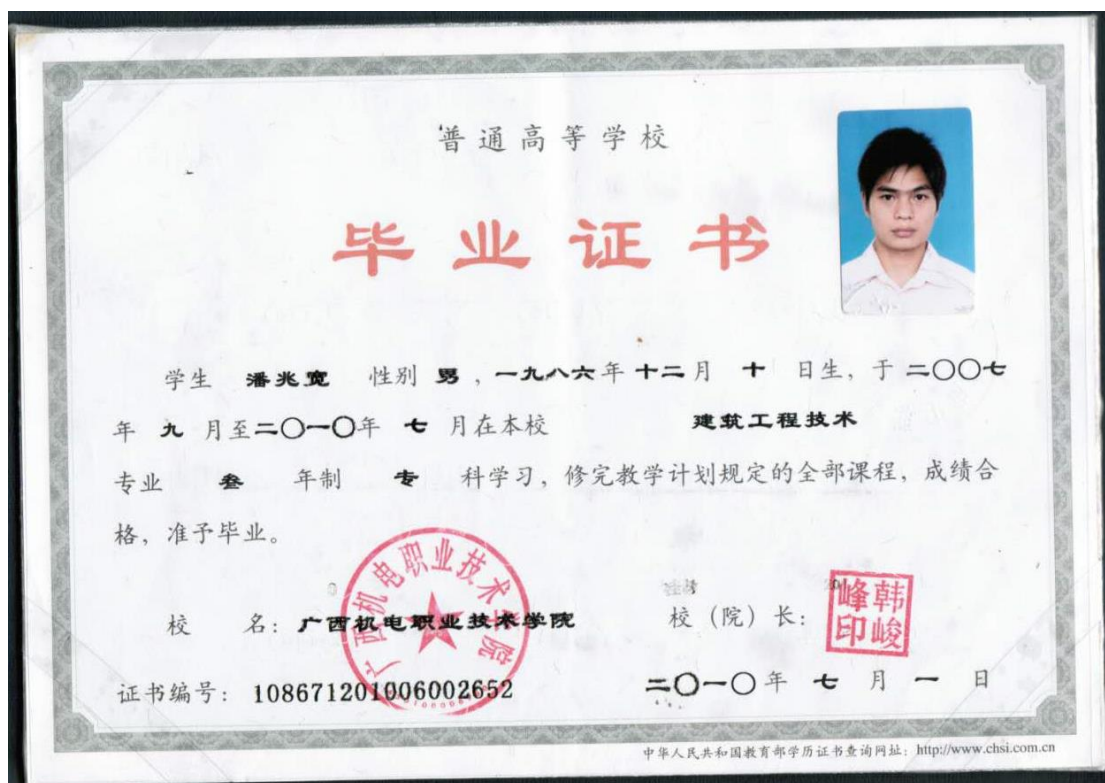 普通高等学校
毕业证书
学生 潘兆宽 性别 男，一九八六年十二月 十 日生，于二〇〇七
年 九 月至二〇一〇年 七 月在本校 建筑工程技术
专业 叁 年制 专 科学习，修完教学计划规定的全部课程，成绩合
格，准予毕业。
校 名：广西机电职业技术学院
校（院）长：
韩峻峰印
广西机电职业技术学院
证书编号：108671201006002652
二〇一〇年 七 月 一 日
中华人民共和国教育部学历证书查询网址：http://www.chsi.com.cn